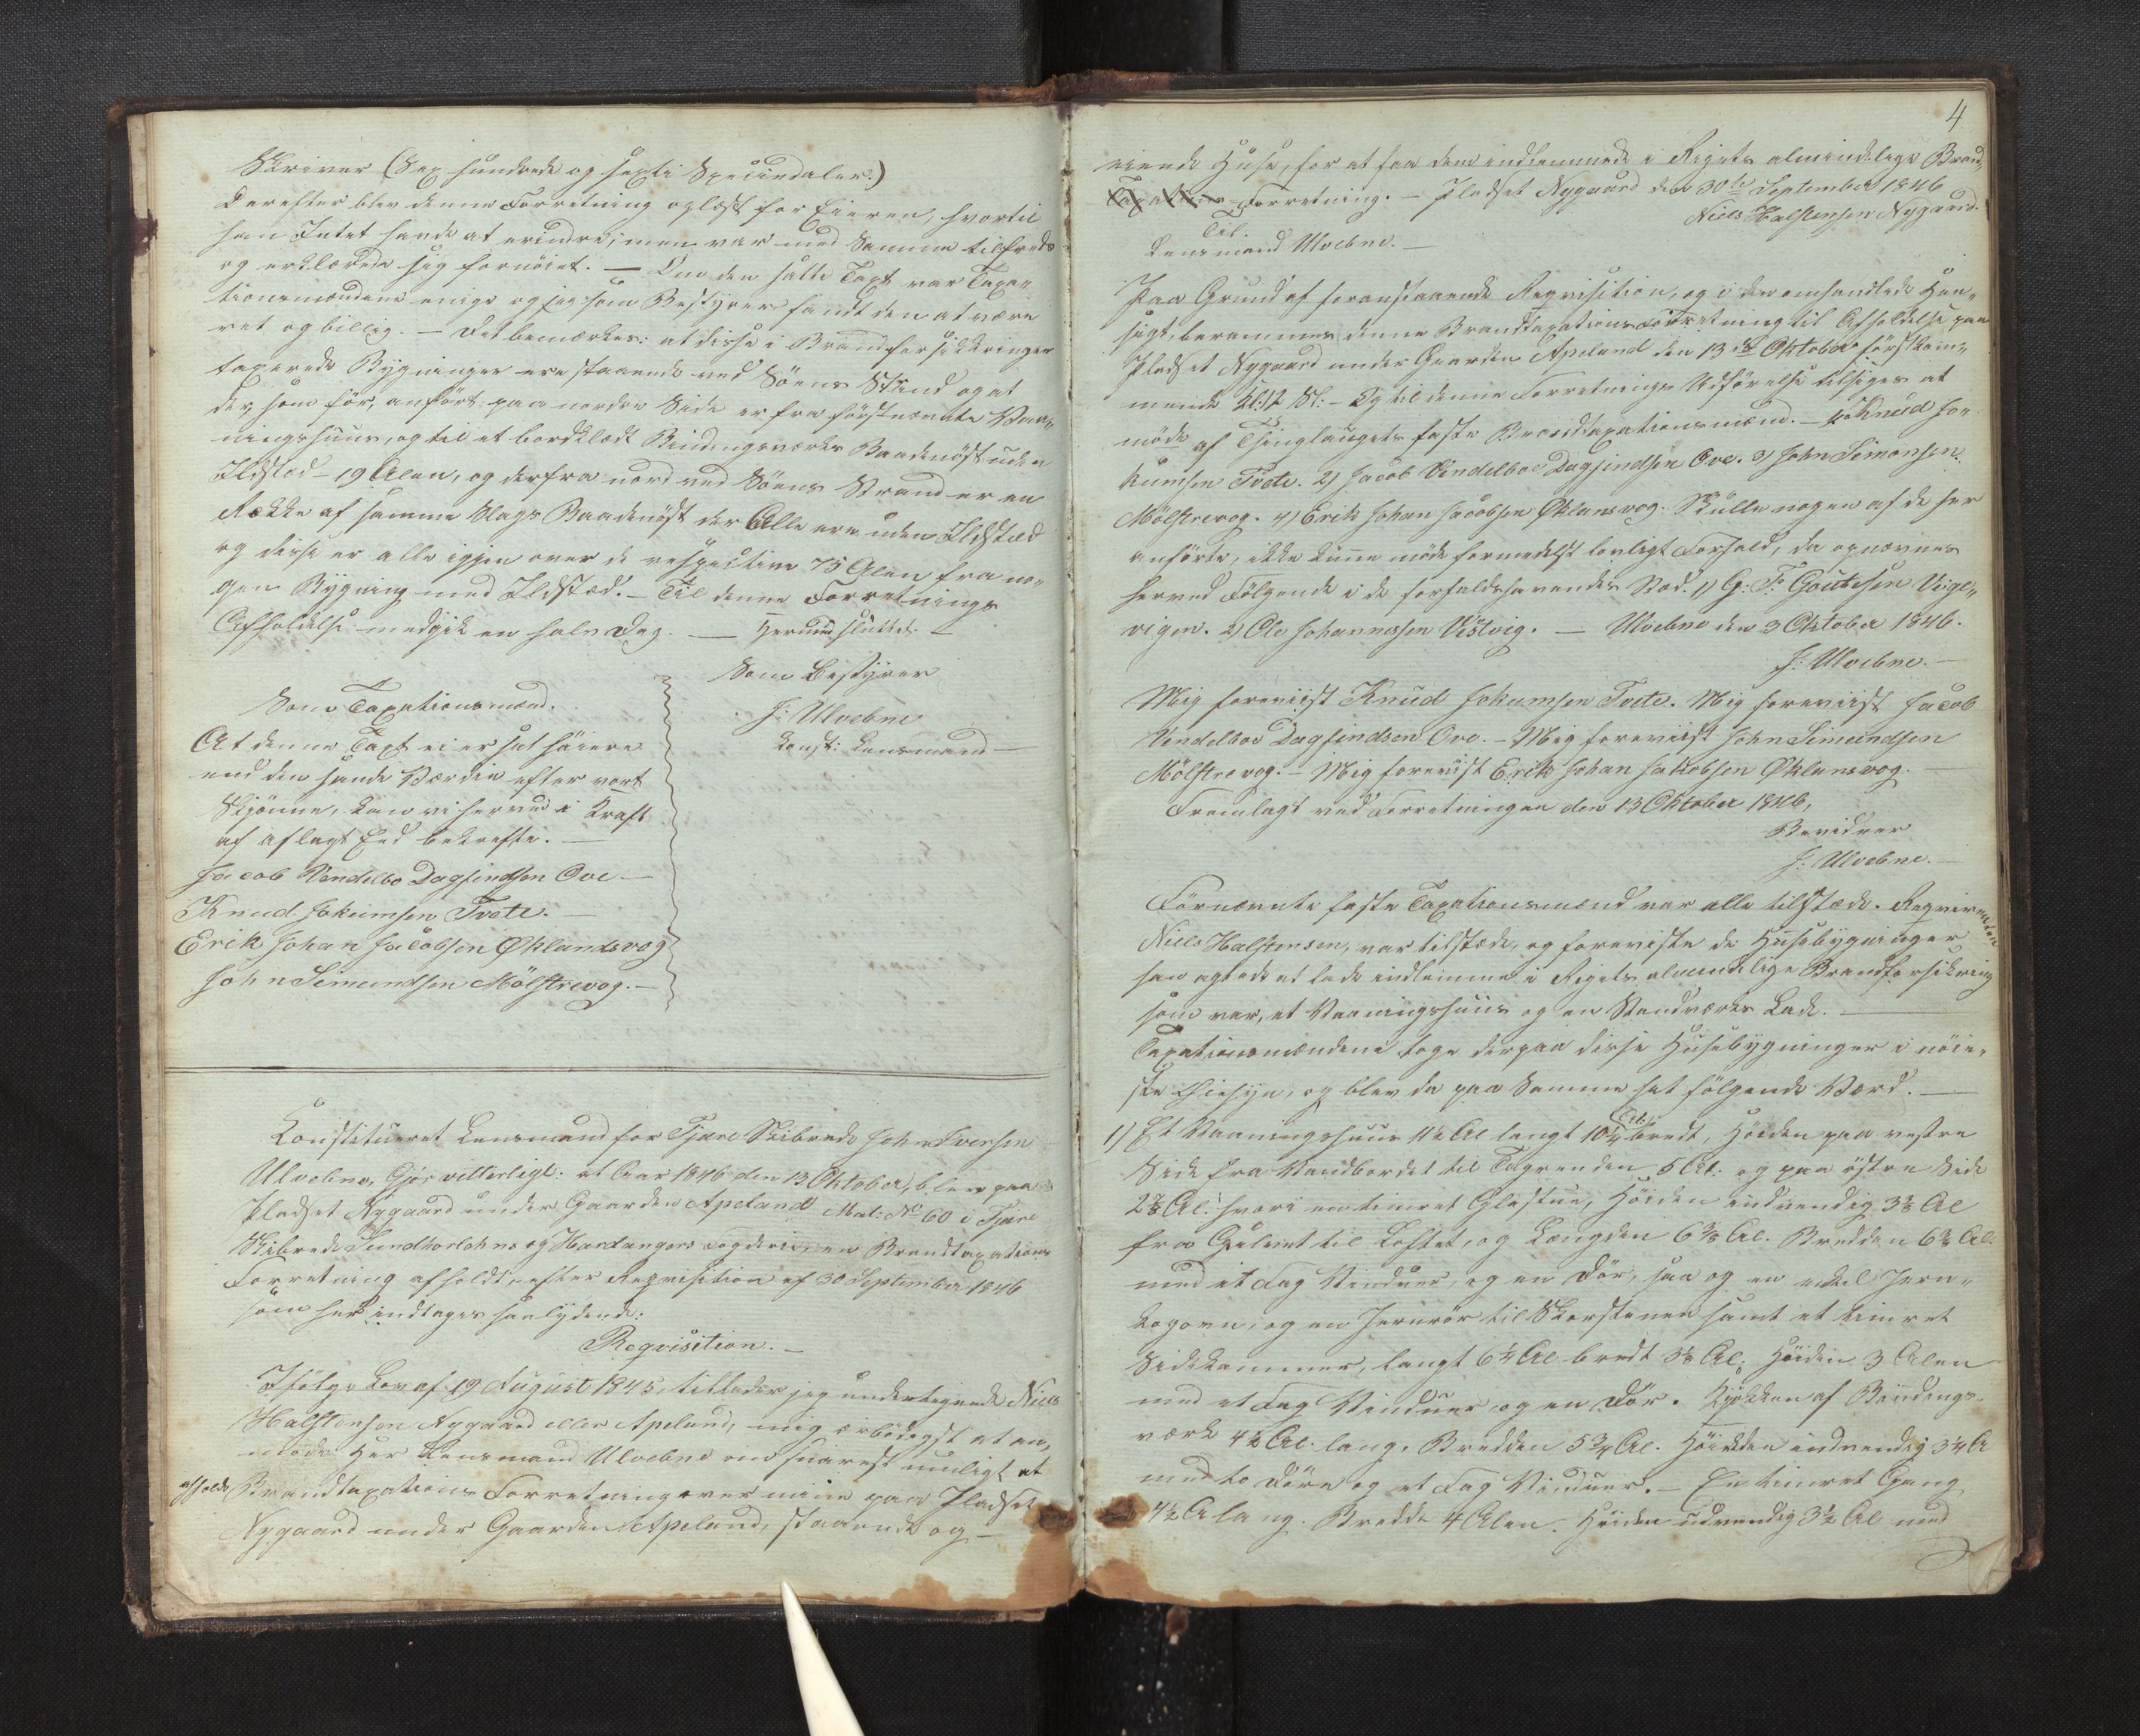 Skriver (Sex hundrede og sexti Speciedaler.)
Derefter blev denne Forretning oplæst for Eieren, hvortil
han Intet havde at erindre; men var med Samme tilfreds
og erklærede sig fornöiet. — Om den satte Taxt var Taxa-
tionsmændene enige og jeg som Bestyrer fandt den at være
ret og billig. — Det bemærkes: at disse i Brandforsikkringen
taxerede Bygninger ere staaende ved Söens Strand og at
der, som för, anfört paa nordre Side er fra förstnævnte Vaa-
ningshuus, og til et bordklædt Bindingsværks Baadenöst uden
Ildsted - 19 Alen, og derfra nord ved Söens Strand er en
Række af samme Slags Baadenöst der Alle ere uden Ildsted
og disse er alle igjen over de respective 75 Alen fra no-
gen Bygning med Ildsted. — Til denne Forretnings
Afholdelse medgik en halv Dag. — Hermed sluttet. —
Som Bestyrer
J: Ulvebne
Const: Lensmand —
Som Taxationsmænd.
At denne Taxt ei er sat höiere
end den sande Værdie efter vort
Skjönne, kan vi herved i Kraft
af aflagt Eed bekræfte. —
Jacob Vendelbo Dagfindsen Ove —
Knud Jokumsen Tvete. —
Erik Johan Jacobsen Øklandsvog
John Simundsen Mölstrevog. —
Constitueret Lensmand for Fjære Skibrede John Iversen
Ulvebne, Gjör vitterligt: at Aar 1846 den 13 Oktober, blev paa
Pladset Nygaard under Gaarden Apeland Mat: No 60 i Fjære
Skibrede Sundhorlehns og Hardangers Fogderie, en Brandtaxations
Forretning afholdt, efter Reqvisition af 30 September 1846
som her indtages saalydende:
Reqvisition. —
Ifölge Lov af 19 August 1845, tillader jeg undertegnede Niels
Halstensen Nygaard eller Apeland, mig ærbödigst at an-
mode Her Lensmand Ulvebne om snarest muligt at
afholde Brandtaxations Forretning over mine paa Pladset
Nygaard under Gaarden Apeland, staaende og —
4
eiende Huse, for at faa dem indlemmede i Rigets almindelige Brand-
Taxations-Forretning. — Pladset Nygaard den 30te September 1846
Niels Halstensen Nygaard.
Til
Lensmand Ulvebne. —
Paa Grund af foranstaaende Reqvisition, og i den omhandlede Hen-
sigt, berammes denne Brandtaxationsforretning til Afholdelse paa
Pladset Nygaard under Gaarden Apeland den 13de Oktober förstkom-
mende Kl: 12 Sl: — Og til denne Forretnings Udförelse tilsiges at
möde af Thinglaugets faste Brandtaxationsmænd. — 1) Knud Jo-
kumsen Tvete. 2) Jacob Vendelboe Dagfindsen Ove. 3) John Simonsen
Mölstrevog. 4) Erik Johan Jacobsen Øklansvog. Skulle nogen af de her
anförte, ikke kunne möde formedelst lovligt Forfald, da opnævnes
herved Fölgende i de forfaldshavendes Sted. 1) G: F: Goutesen Vigel-
vigen. 2) Ole Johannessen Vestvig. — Ulvebne den 3 Oktober 1846.
J: Ulvebne. —
Mig foreviist Knud Jokumsen Tvete. Mig foreviist Jacob
Vendelboe Dagfindsen Ove. — Mig foreviist John Simundsen
Mölstrevog. — Mig foreviist Erik Johan Jakobsen Øklansvog. —
Fremlagt ved Forretningen den 13 Oktober 1846,
Bevidner
J: Ulvebne. —
Fornævnte faste Taxationsmænd var alle tilstæde. Reqvirenten
Niels Halstensen, var tilstæde, og foreviste de Husebygninger
han agtede at lade indlemme i Rigets almindelige Brandforsikring
som var, et Vaaningshuus og en Standværks Lade. —
Taxationsmændene toge derpaa disse Husebygninger i nöie-
ste Øiesyn, og blev da paa Samme sat fölgende Værd. —
1) Et Vaaningshuus 11½ Al langt 10¼ Al: bredt, Höiden paa vestre
Side fra Vandbordet til Tagrenden 5 Al: og paa östre Side
2⅞ Al: hvori en timret Glastue, Höiden indvendig 3⅜ Al
fra Gulvet til Loftet, og Længden 6⅜ Al. Bredden 6⅜ Al.
med et Fag Vinduer, og en Dör, saa og en enkel Jern-
kogovn, og en Jernrör til Skorstenen samt et timret
Sidekammer, langt 6¼ Al bredt 3⅛ Al; Höiden 3 Alen
med et Fag Vinduer og en Dör. Kjökken af Bindings-
værk 4½ Al. lang. Bredden 5¾ Al. Höiden indvendig 3¼ A
med to Döre og et Fag Vinduer. — En timret Gang
4½ A lang. Bredde 4 Alen. Höiden udvendig 3½ Al med